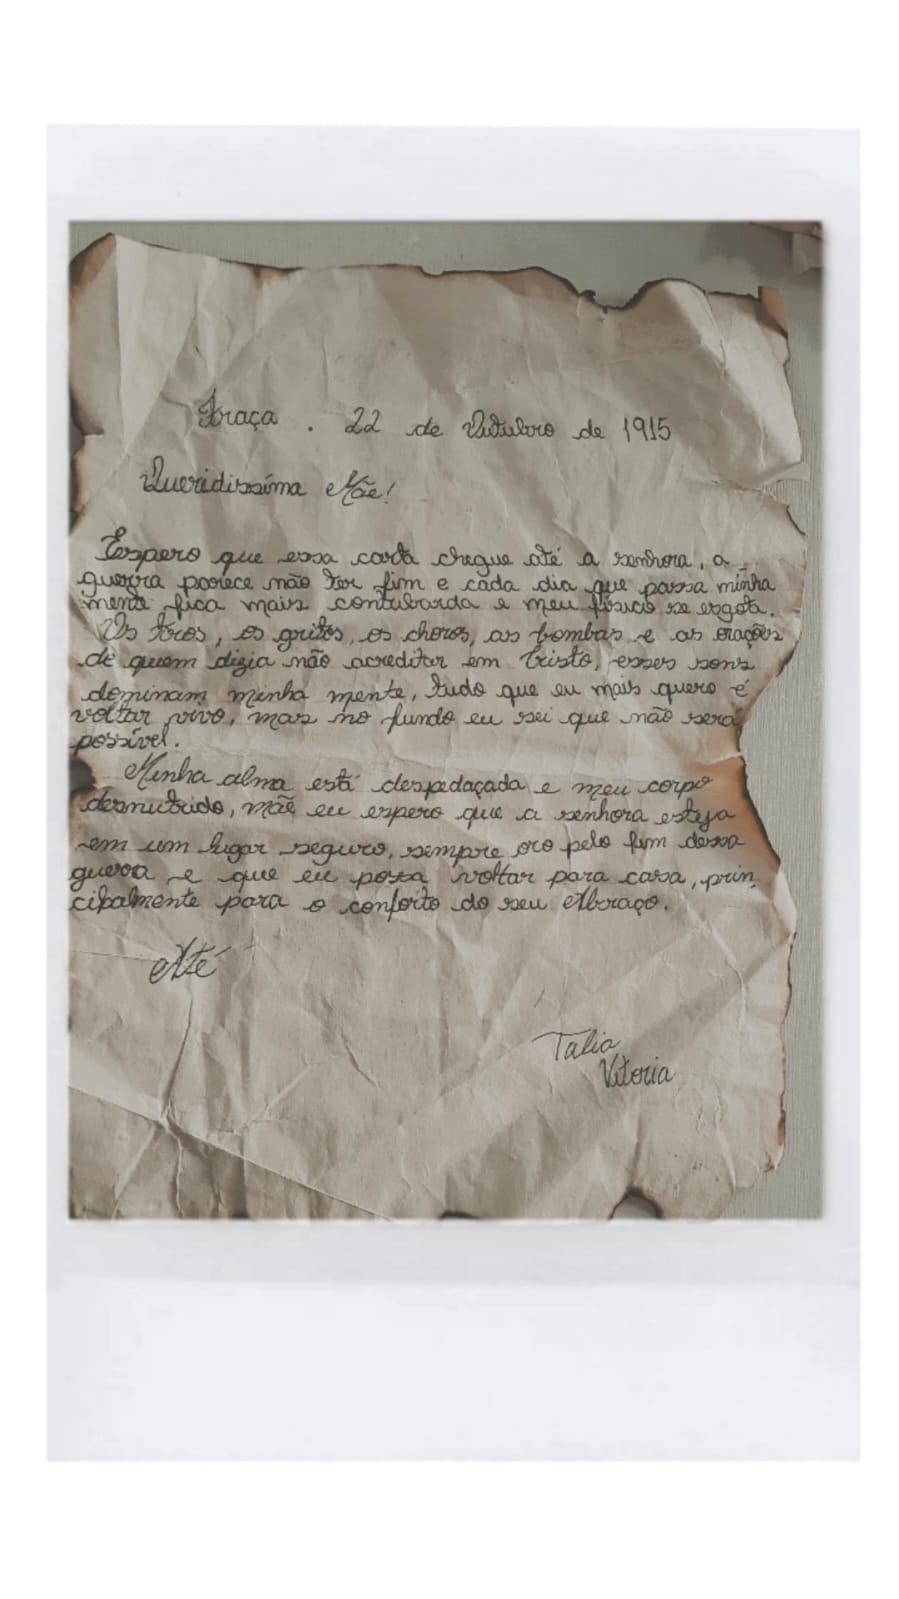 Fraça . 22 de Outubro de 1915
Queridissíma Mãe!
Espero que essa carta chegue até a senhora, a
guerra parece não ter fim e cada dia que passa minha
mente fica mais contubarda e meu físsico se esgota.
Os tiros, os gritos, os choros, as bombas e as orações
de quem dizia não acreditar em Cristo, esses sons
dominam minha mente, tudo que eu mais quero é
voltar vivo, mas no fundo eu sei que não será
possível.
Minha alma está despedaçada e meu corpo
desnutrido, mãe eu espero que a senhora esteja
em um lugar seguro, sempre oro pelo fim dessa
guerra e que eu possa voltar para casa, prin
cipalmente para o conforto do seu Abraço.
Até
Talia
Vitoria